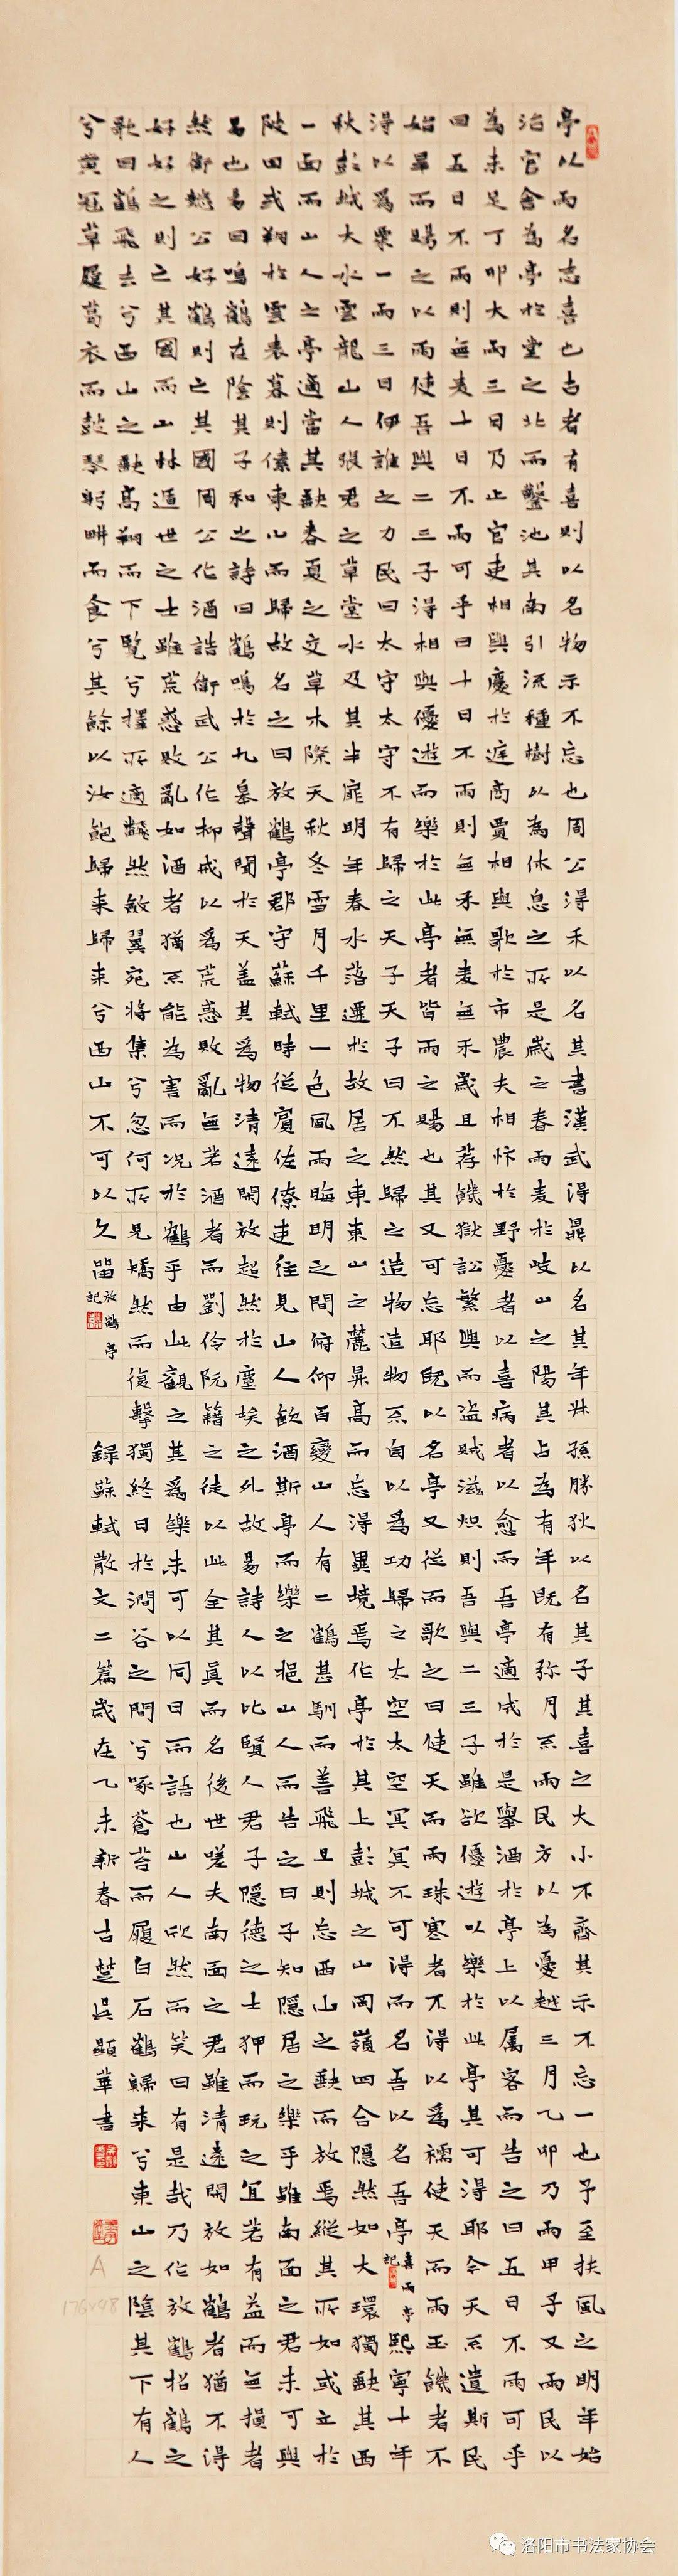 亭以雨名志喜也古者有喜則以名物示不忘也周公得禾以名其書漢武得鼎以名其年叔孫勝狄以名其子其喜之大小不齊其示不忘一也予至扶風之明年始
治官舍為亭於堂之北而鑿池其南引流種樹以為休息之所是歲之春雨麥於岐山之陽其占為有年既有弥月不雨民方以為憂越三月乙卯乃雨甲子又雨民以
為未足丁卯大雨三日乃止官吏相與慶於庭商賈相與歌於市農夫相忭於野憂者以喜病者以愈而吾亭適成於是舉酒於亭上以属客而告之曰五日不雨可乎
曰五日不雨則無麦十日不雨可乎曰十日不雨則無禾無麦無禾歲且荐饑獄訟繁興而盜賊滋熾則吾與二三子雖欲優遊以樂於此亭其可得耶今天不遺斯民
始旱而賜之以雨使吾與二三子得相與優遊而樂於此亭者皆雨之賜也其又可忘耶既以名亭又從而歌之曰使天而雨珠寒者不得以為襦使天而雨玉饑者不
得以為粟一雨三日伊誰之力民曰太守太守不有歸之天子天子曰不然歸之造物造物不自以為功歸之太空太空冥冥不可得而名吾以名吾亭
喜雨亭記
熙寧十年
秋彭城大水雲龍山人張君之草堂水及其半扉明年春水落遷於故居之東東山之麓昇高而忘得異境焉作亭於其上彭城之山岡嶺四合隱然如大環獨缺其西
一面而山人之亭適當其缺春夏之交草木際天秋冬雪月千里一色風雨晦明之間俯仰百變山人有二鶴甚馴而善飛旦則忘西山之缺而放焉縱其所如或立於
陂田或翔於雲表暮則傃東山而歸故名之曰放鶴亭郡守蘇軾時從賓佐僚吏往見山人飲酒斯亭而樂之挹山人而告之曰子知隱居之樂乎雖南面之君未可與
易也易曰鳴鶴在陰其子和之詩曰鶴鳴於九皋聲聞於天蓋其為物清遠閒放超然於塵埃之外故易詩人以比賢人君子隱德之士狎而玩之宜若有益而無損者
然衛懿公好鶴則亡其國周公作酒誥衛武公作抑戒以為荒惑敗亂無若酒者而劉伶阮籍之徒以此全其真而名後世嗟夫南面之君雖清遠閒放如鶴者猶不得
好好之則亡其國而山林遁世之士雖荒惑敗亂如酒者猶不能為害而况於鶴乎由此觀之其為樂未可以同日而語也山人欣然而笑曰有是哉乃作放鶴招鶴之
歌曰鶴飛去兮西山之缺高翔而下覽兮擇所適翻然斂翼宛將集兮忽何所見矯然而復擊獨終日於澗谷之間兮啄蒼苔而履白石鶴歸來兮東山之陰其下有人
兮黃冠草屨葛衣而鼓琴躬耕而食兮其餘以汝飽歸來歸來兮西山不可以久留
放鶴亭記
録蘇軾散文二篇歲在乙未新春古楚吳顯華書
A
洛阳市书法家协会